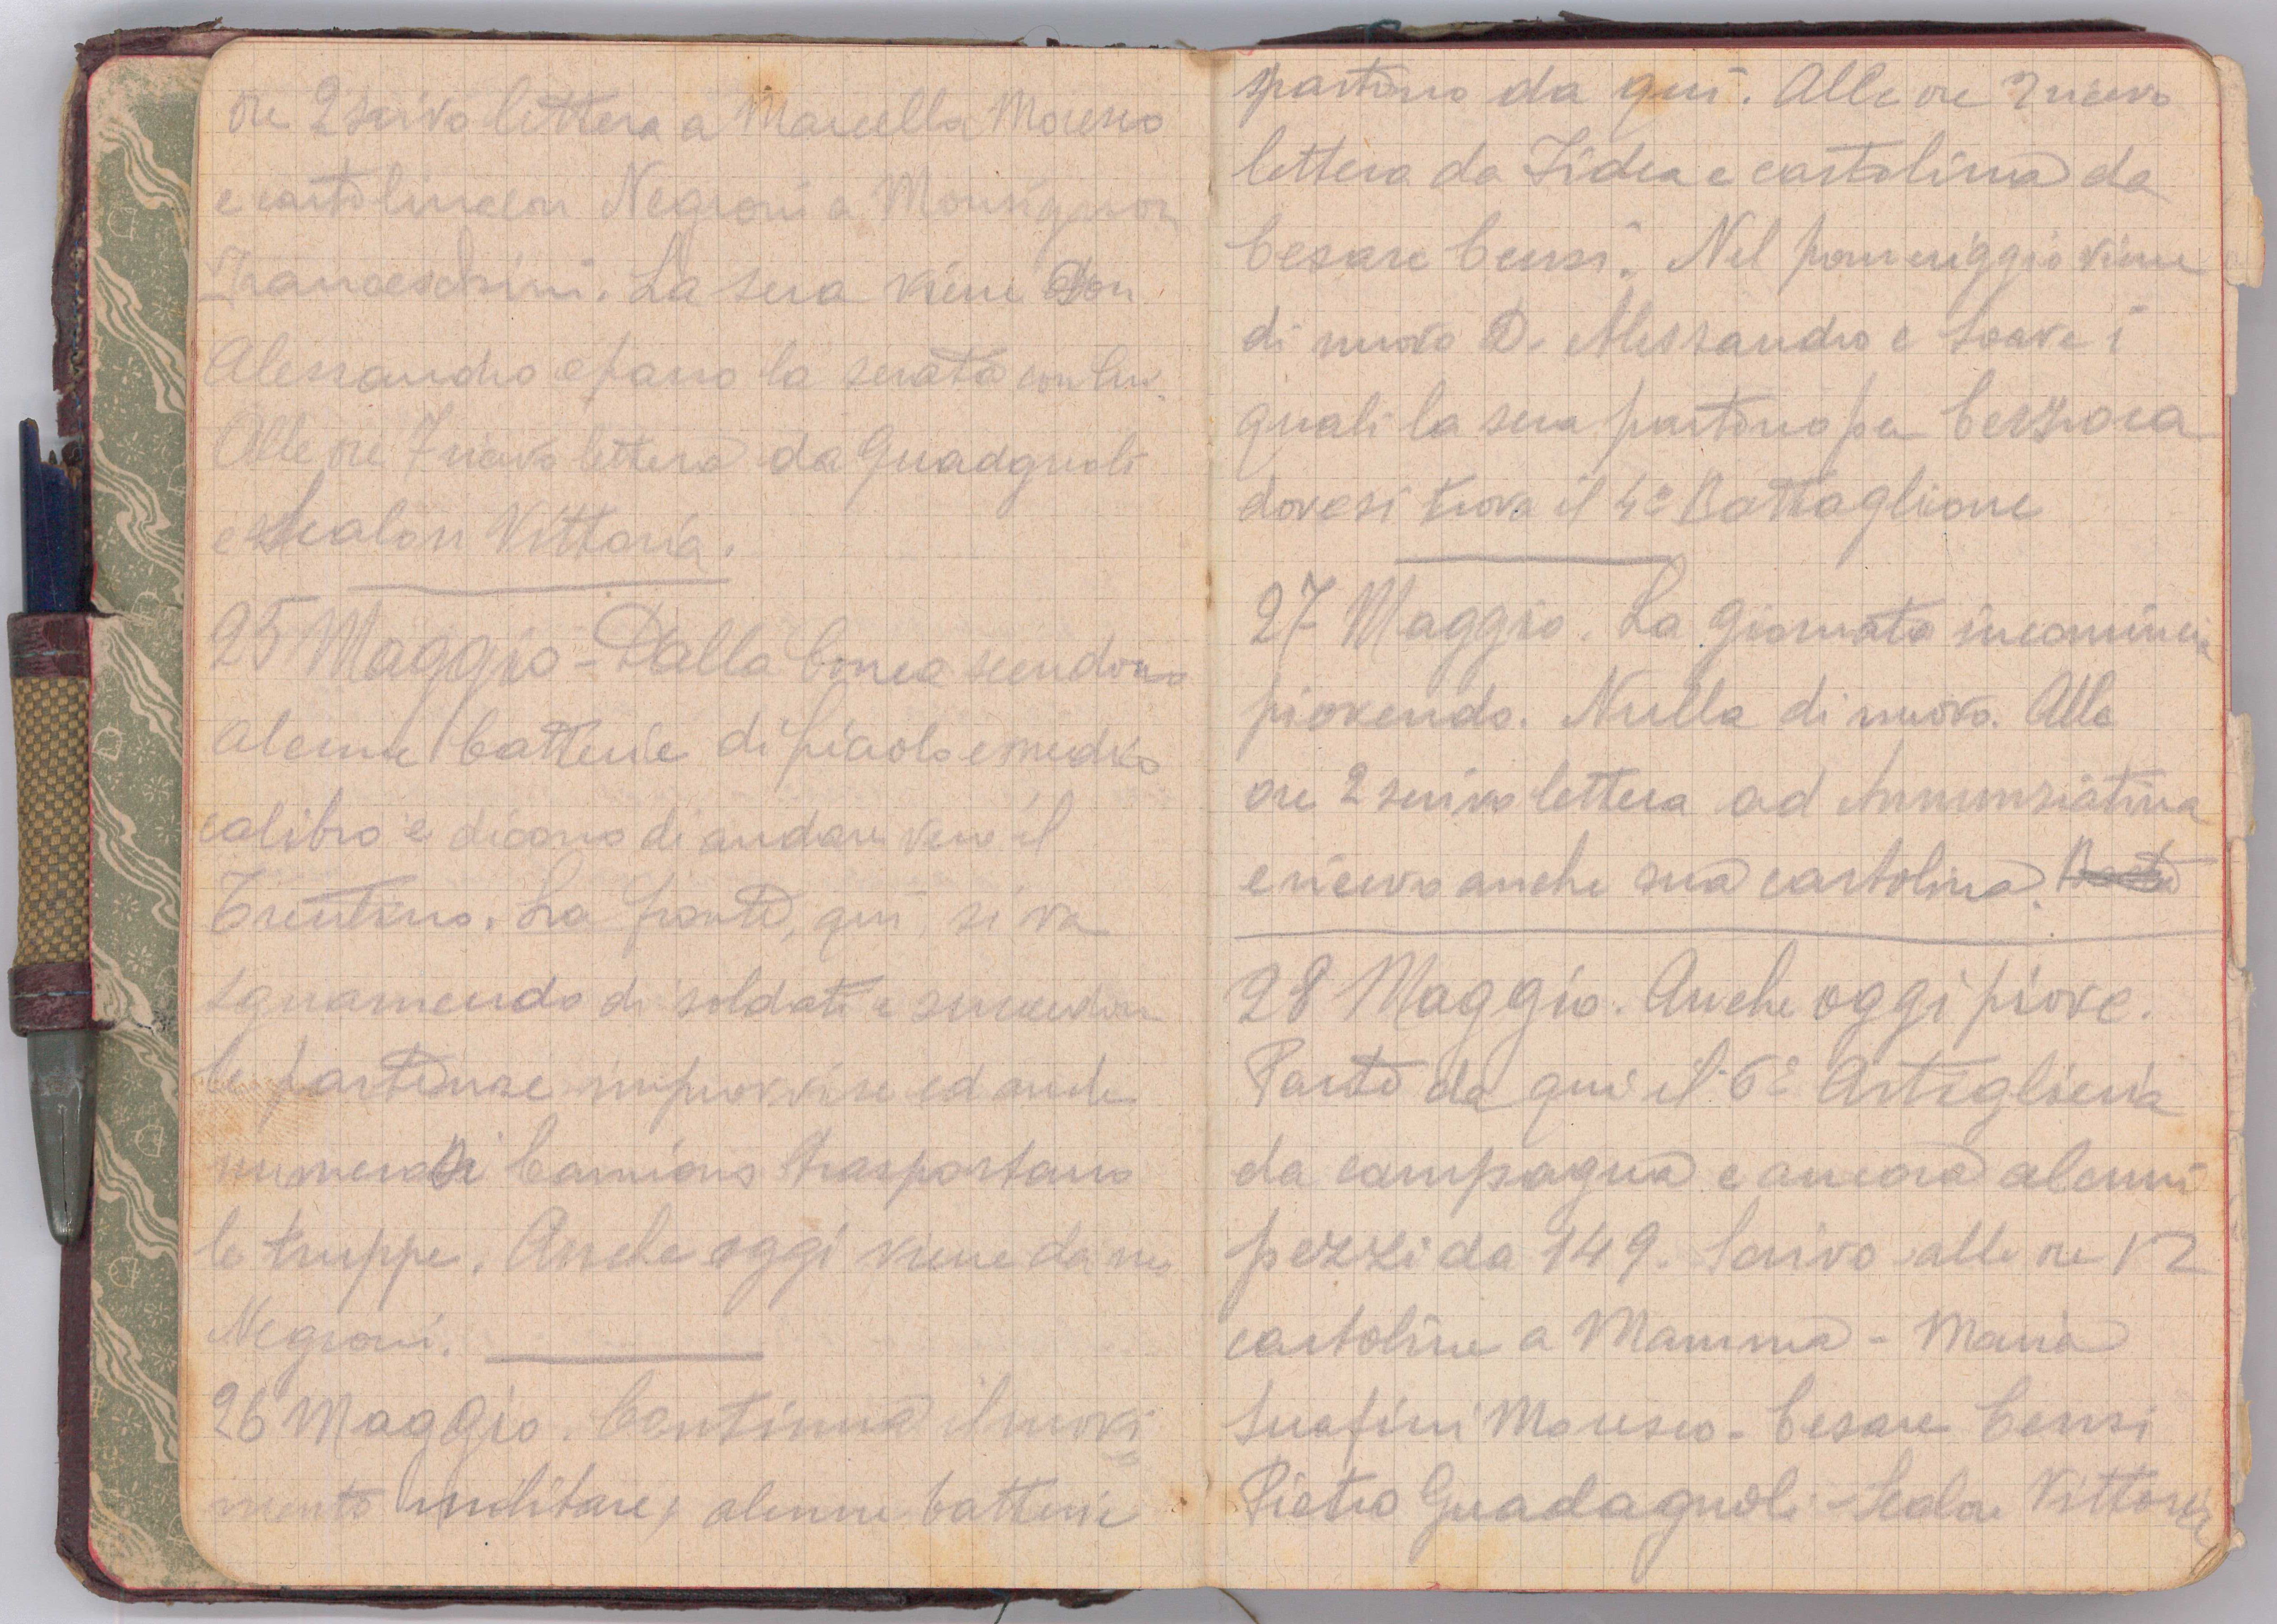 ore 2 scrivo lettera a Marcella Moresco
e cartolina con Negroni a Monsignor
Franceschini. La sera viene Don
Alessandro e passo la serata con lui.
Alle ore 7 ricevo lettera da Guadgnoli
e Scalon Vittoria.
25 Maggio - Dalla Conca scendono
alcune batterie di piccolo e medio
calibro e dicono di andare verso il
Trentino. La fronte, qui, si va
squarnendo di soldati e succedono
le partenze improvvise ed anche
numerosi Camions trasportano
le truppe. Anche oggi viene da me
Negroni.
26 Maggio. Continua il movi-
mento militare, alcune batterie
partono da qui. Alle ore 2 ricevo
lettera da Fidea e cartolina da
Cesare Censi. Nel pomeriggio viene
di nuovo D. Alessandro e Soave i
quali la sera partono per Cersoca
dove si trova il 4º Battaglione
27 Maggio. La giornata incomincia
piovendo. Nulla di nuovo. Alle
ore 2 scrivo lettera ad Annunziatina
e ricevo anche sua cartolina.
28 Maggio. Anche oggi piove.
Parte da qui il 6º Artiglieria
da campagna e ancora alcuni
pezzi da 149. Scrivo alle ore 12
cartoline a Mamma - Maria
Serafini Moresco - Cesare Censi
Pietro Guadagnoli - Scalon Vittoria